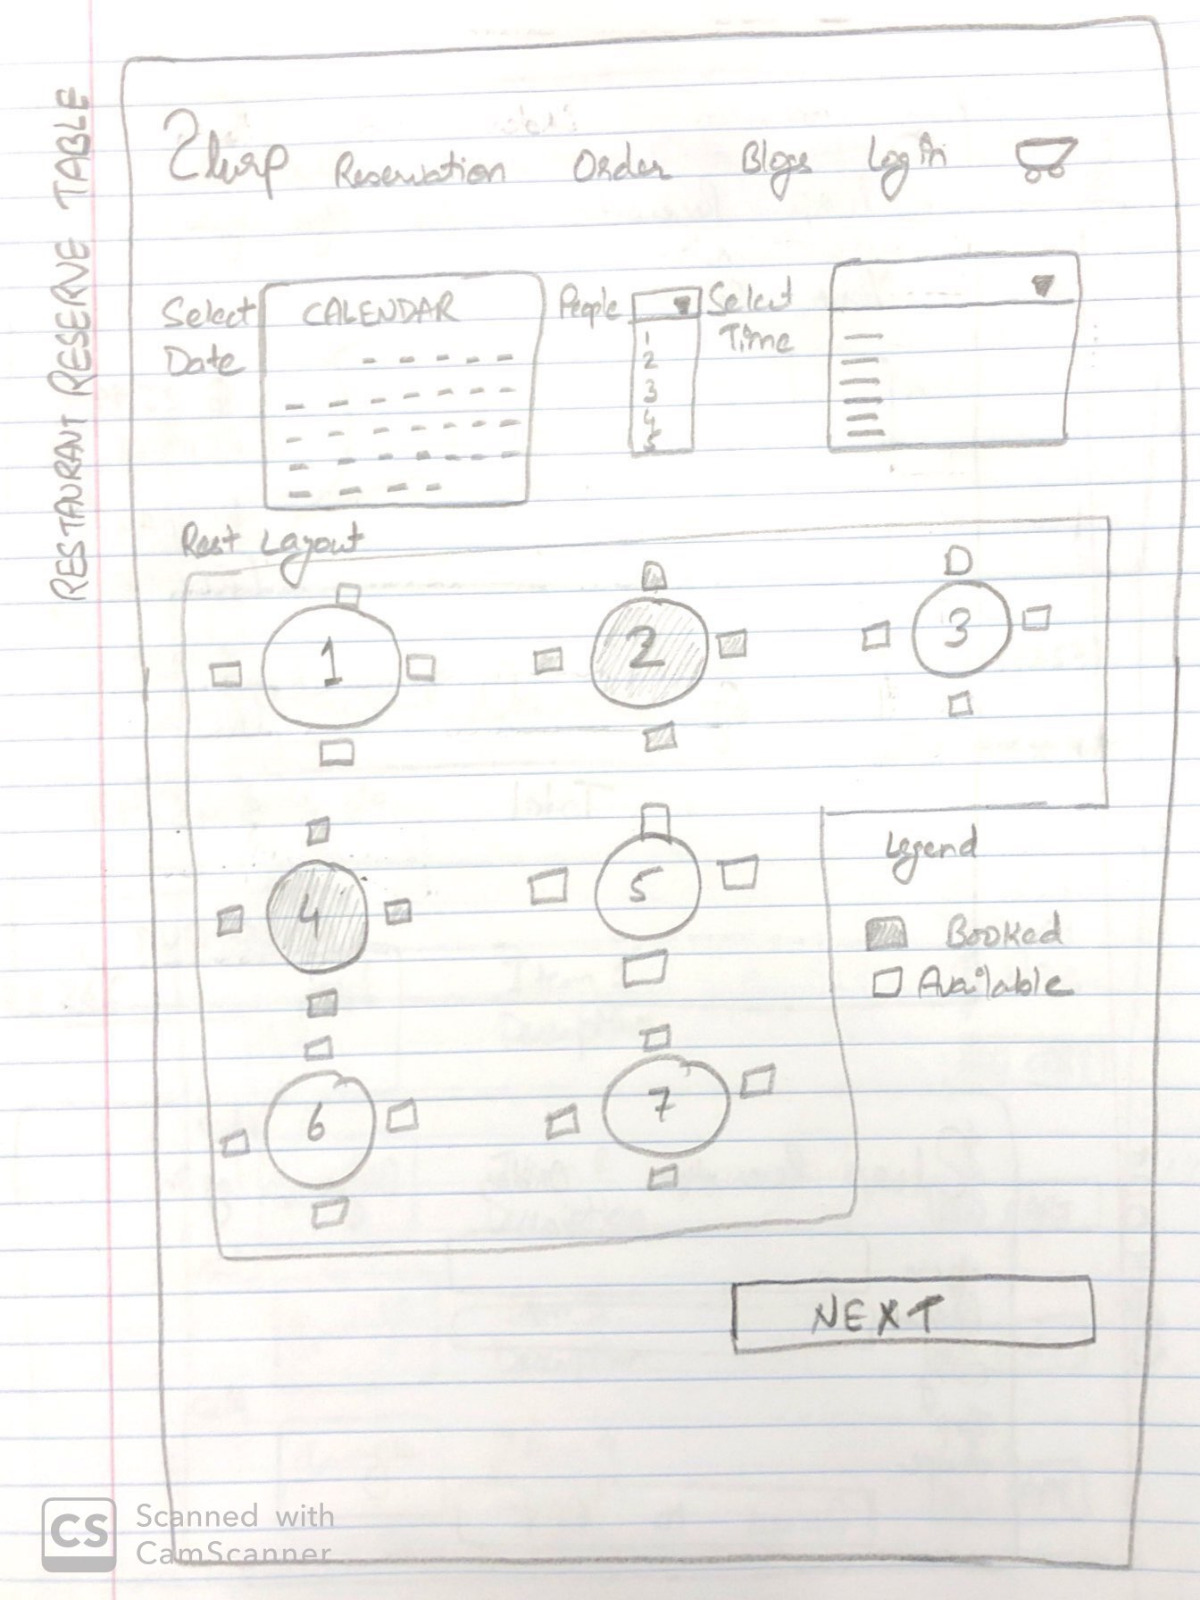 RESTAURANT RESERVE TABLE
Reservation Order Blogs Login
Select Date
CALENDAR
People
1
2
3
4
5
Select Time
Rest Layout
1
2
3
4
5
6
7
Legend
Booked
Available
NEXT
CS Scanned with
CamScanner